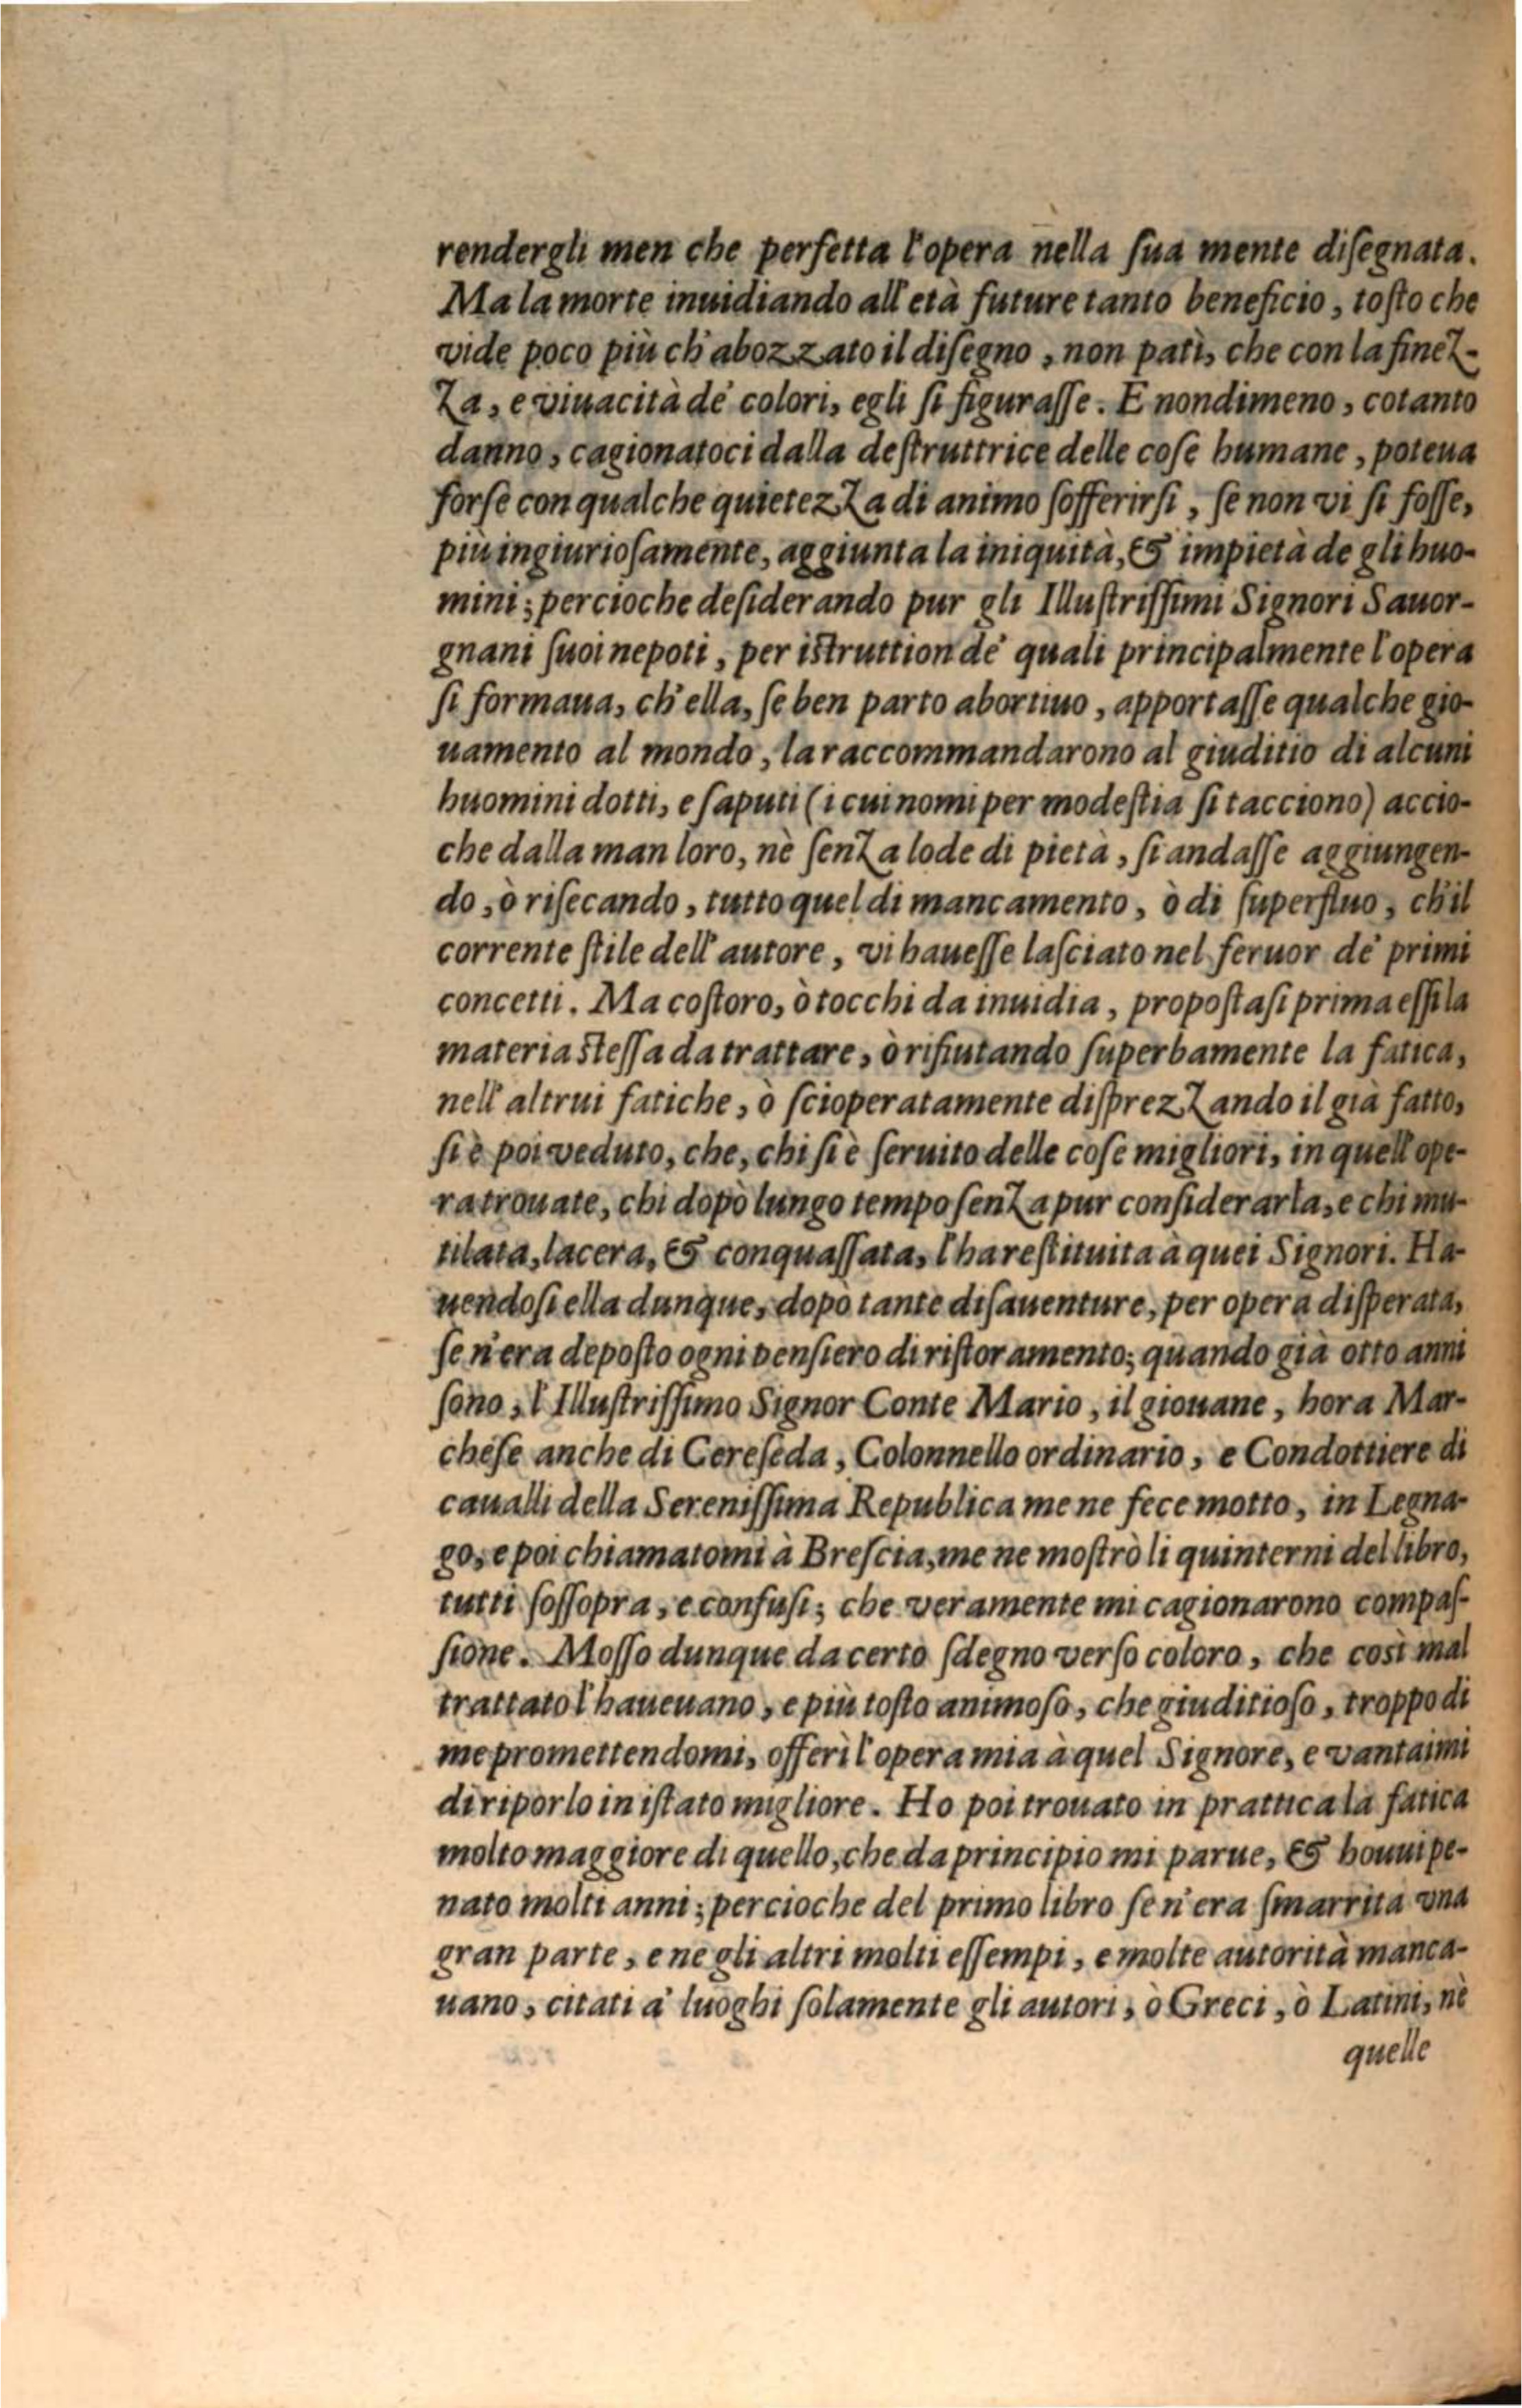 rendergli men che perfetta l'opera nella ſua mente diſegnata.
Ma la morte inuidiando all'età future tanto beneficio, toſto che
vide poco più ch'abozzato il diſegno, non patì, che con la finez-
za, e viuacità de' colori, egli ſi figuraſſe. E nondimeno, cotanto
danno, cagionatoci dalla deſtruttrice delle coſe humane, poteua
forſe con qualche quietezza di animo ſofferirſi, ſe non vi ſi foſſe,
più ingiurioſamente, aggiunta la iniquità, & impietà de gli huo-
mini; percioche deſiderando pur gli Illuſtriſſimi Signori Sauor-
gnani ſuoi nepoti, per iſtruttion de' quali principalmente l'opera
ſi formaua, ch'ella, ſe ben parto abortiuo, apportaſſe qualche gio-
uamento al mondo, la raccommandarono al giuditio di alcuni
huomini dotti, e ſaputi (i cui nomi per modeſtia ſi tacciono) accio-
che dalla man loro, nè ſenza lode di pietà, ſi andaſſe aggiungen-
do, ò riſecando, tutto quel di mancamento, ò di ſuperfluo, ch'il
corrente ſtile dell'autore, vi haueſſe laſciato nel feruor de' primi
concetti. Ma coſtoro, ò tocchi da inuidia, propoſtaſi prima eſſi la
materia ſteſſa da trattare, ò rifiutando ſuperbamente la fatica,
nell'altrui fatiche, ò ſcioperatamente diſprezzando il già fatto,
ſi è poi veduto, che, chi ſi è ſeruito delle coſe migliori, in quell'ope-
ra trouate, chi dopò lungo tempo ſenza pur conſiderarla, e chi mu-
tilata, lacera, & conquaſſata, l'ha reſtituita à quei Signori. Ha-
uendoſi ella dunque, dopò tante diſauenture, per opera diſperata,
ſe n'era depoſto ogni penſiero di riſtoramento; quando già otto anni
ſono, l'Illuſtriſſimo Signor Conte Mario, il giouane, hora Mar-
cheſe anche di Cereſeda, Colonnello ordinario, e Condottiere di
caualli della Sereniſſima Republica me ne fece motto, in Legna-
go, e poi chiamatomi à Breſcia, me ne moſtrò li quinterni del libro,
tutti ſoſſopra, e confuſi; che veramente mi cagionarono compaſ-
ſione. Moſſo dunque da certo ſdegno verſo coloro, che così mal
trattato l'haueuano, e più toſto animoſo, che giuditioſo, troppo di
me promettendomi, offerì l'opera mia à quel Signore, e vantaimi
di riporlo in iſtato migliore. Ho poi trouato in prattica la fatica
molto maggiore di quello, che da principio mi parue, & houui pe-
nato molti anni; percioche del primo libro ſe n'era ſmarrita vna
gran parte, e ne gli altri molti eſſempi, e molte autorità manca-
uano, citati a' luoghi ſolamente gli autori, ò Greci, ò Latini, nè
quelle